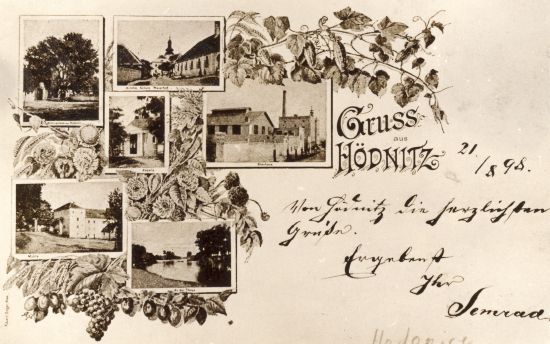 Kirche, Schule, Meierhof
Gruss
aus
HÖDNITZ
21/8 98.
Brauhaus
Kapelle
Mühle
An der Thaya
Von Hödnitz die herzlichsten
Grüße.
Ergebenst
Ihr
Semrad